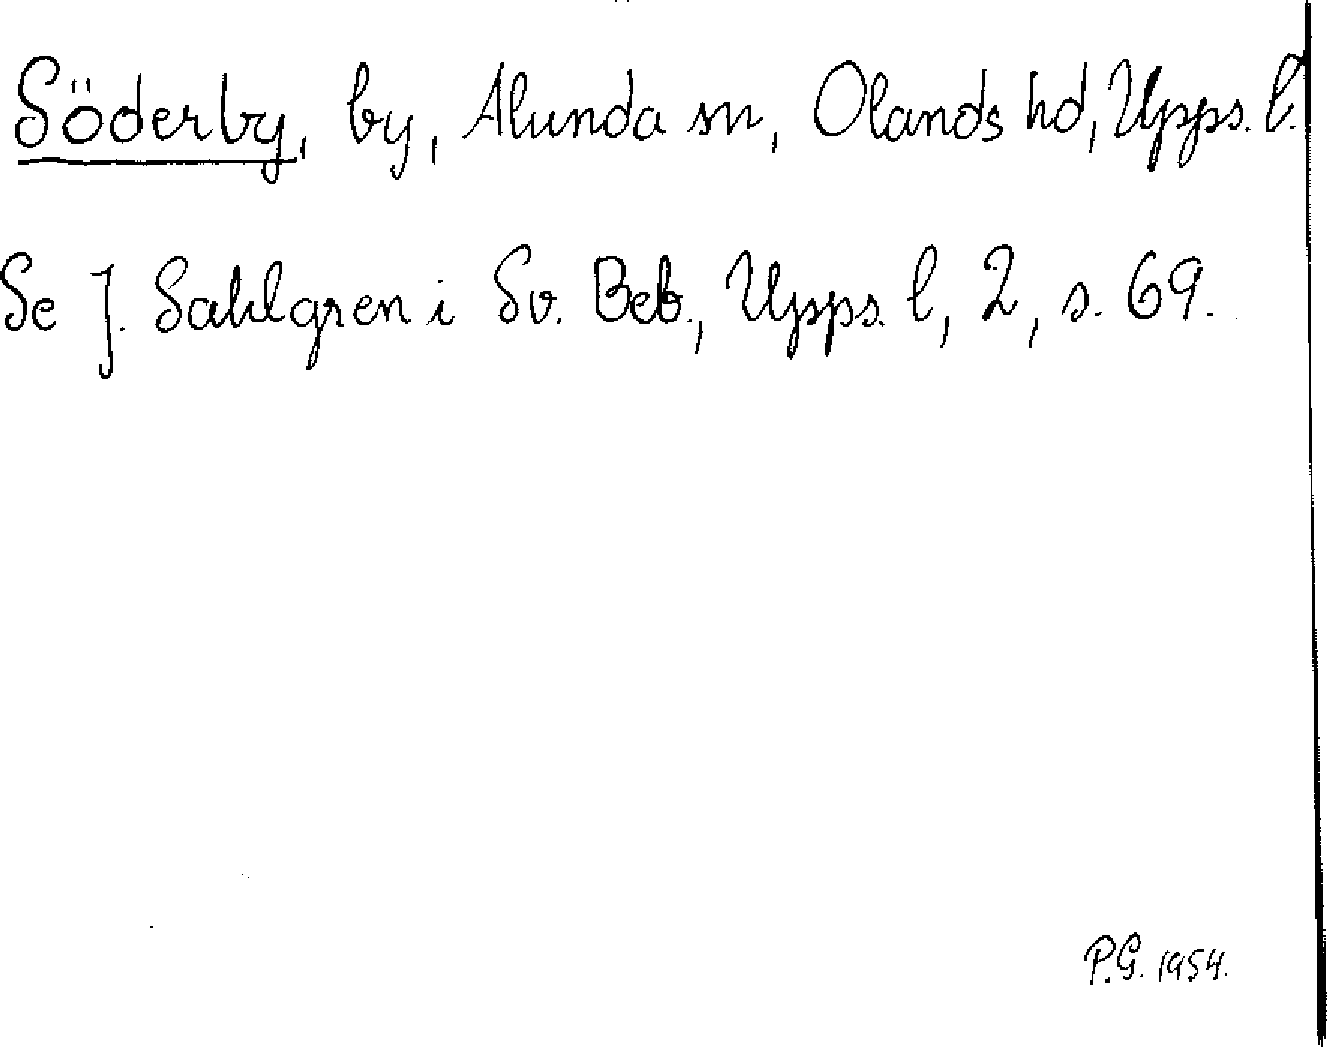 Söderby, by, Alunda sn, Olands hd, Upps. l.
Se J. Sahlgren i Sv. Beb., Upps. l, 2, s. 69.
P.G. 1954.